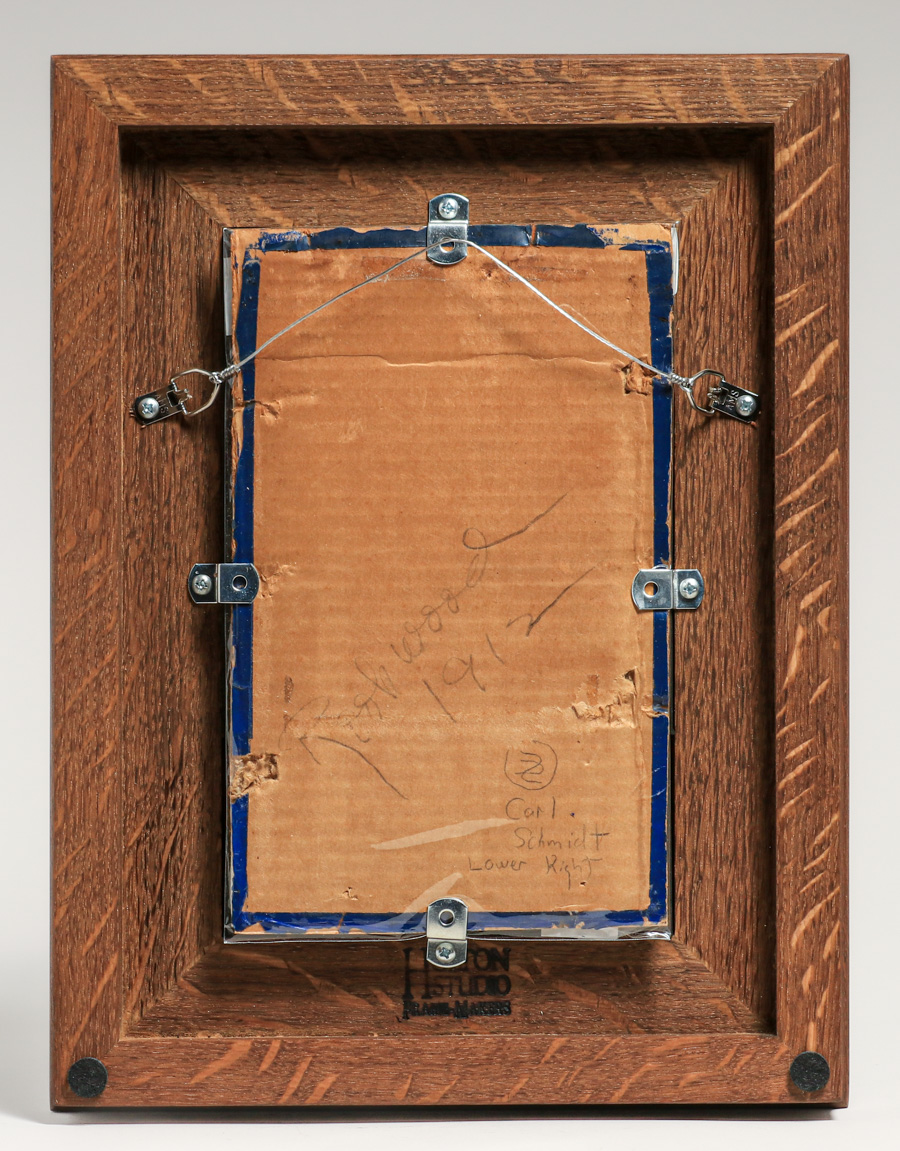 Rookwood
1912
Carl.
Schmidt
Lower Right
STUDIO
FRAME-MAKERS